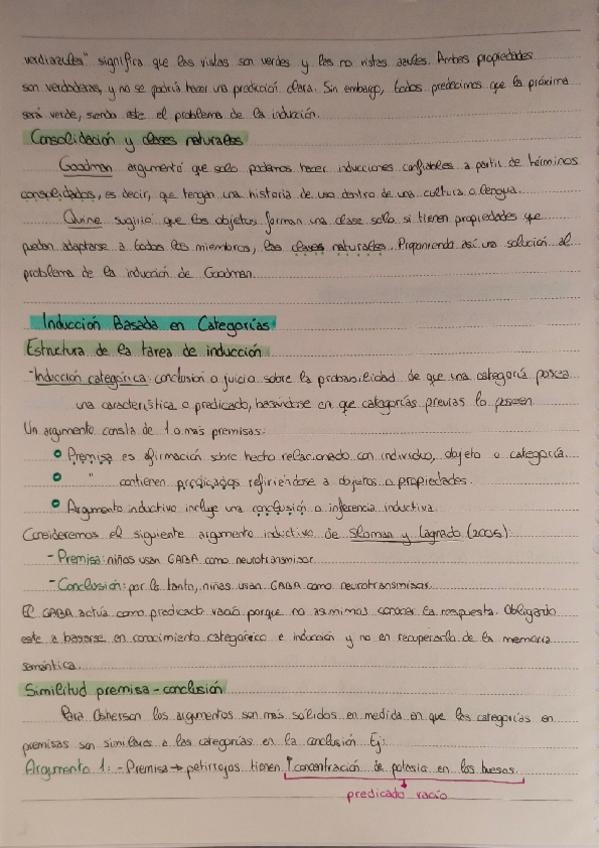 verdiazules" significa que las vistas son verdes y las no vistas azules. Ambas propiedades
son verdaderas, y no se podría hacer una predicción clara. Sin embargo, todos predecimos que la próxima
será verde, siendo este el problema de la inducción.
Consolidación y clases naturales
Goodman argumentó que solo podemos hacer inducciones confiables a partir de términos
consolidados, es decir, que tengan una historia de uso dentro de una cultura o lengua.
Quine sugirió que los objetos forman una clase solo si tienen propiedades que
puedan adaptarse a todos los miembros, las clases naturales. Proponiendo así una solución al
problema de la inducción de Goodman.
Inducción Basada en Categorías
Estructura de la tarea de inducción
-Inducción categórica: conclusión o juicio sobre la probabilidad de que una categoría posea
una característica o predicado, basándose en que categorías previas lo poseen
Un argumento consta de 1 o más premisas:
Premisa es afirmación sobre hecho relacionado con individuo, objeto o categoría.
" contienen predicados refiriéndose a objetos o propiedades.
Argumento inductivo incluye una conclusión o inferencia inductiva.
Consideremos el siguiente argumento inductivo de Sloman y Lagnado (2005):
- Premisa: niños usan GABA como neurotransmisor
- Conclusión: por lo tanto, niñas usan GABA como neurotransmisor.
El GABA actúa como predicado vacío porque no asumimos conocer la respuesta. Obligando
este a basarse en conocimiento categórico e inducción y no en recuperarla de la memoria
semántica.
Similitud premisa-conclusión
Para Osherson los argumentos son más sólidos en medida en que las categorías en
premisas son similares a las categorías en la conclusión. Ej:
Argumento 1: - Premisa → petirrojos tienen ↑concentración de potasio en los huesos.
predicado vacío